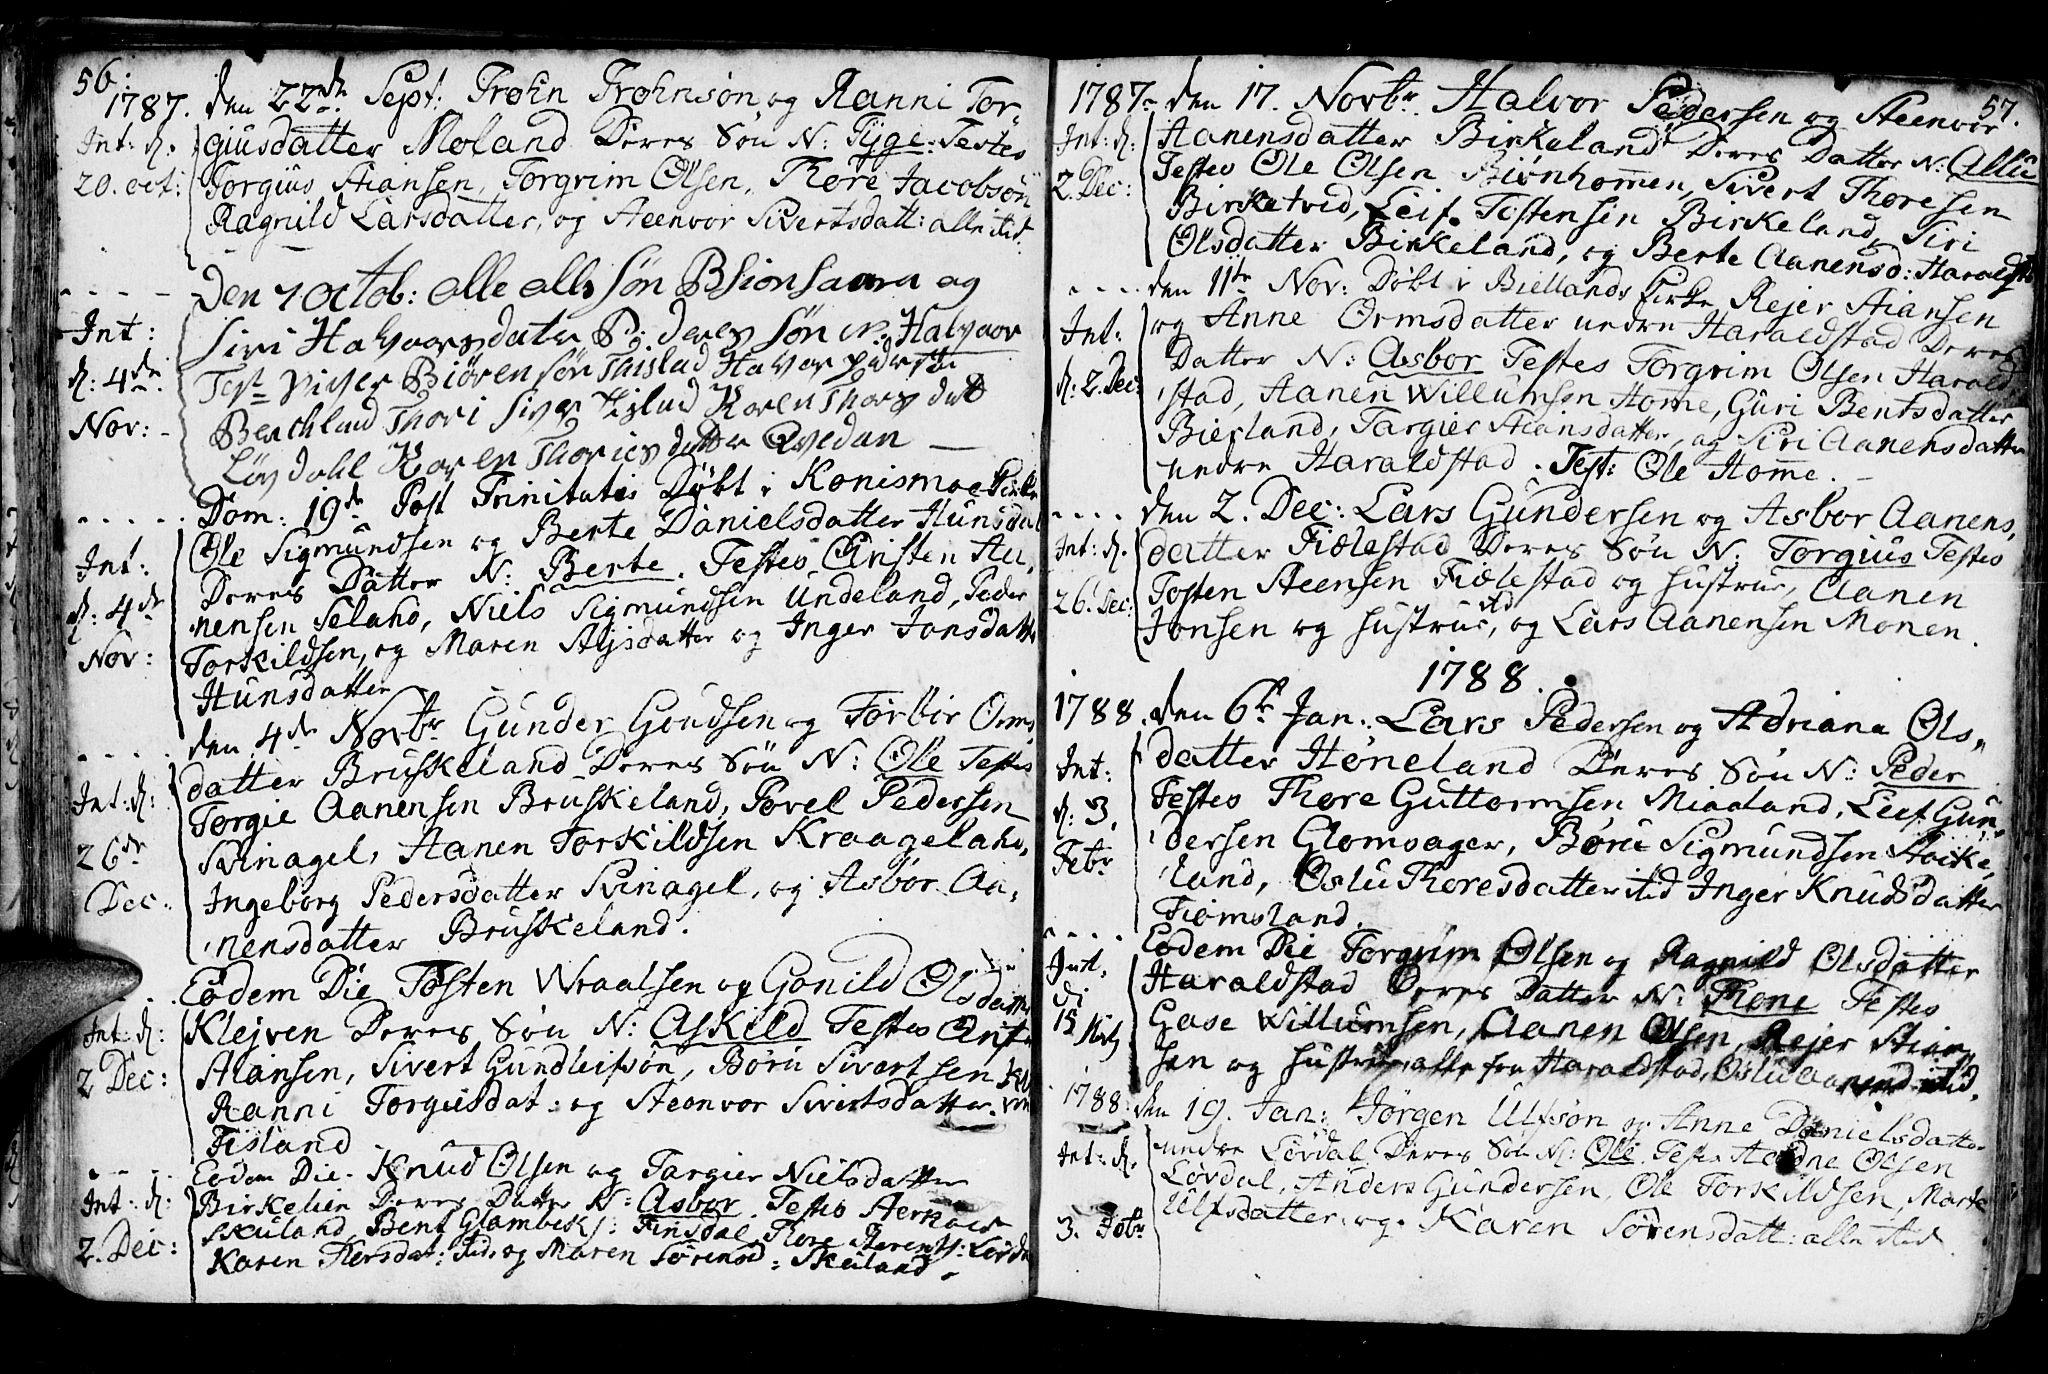 56.
1787. den 22de Sept: Trohn Trohnsøn og Ranni Tor-
Int: d. giusdatter Moland Deres Søn N: Tygge. Testes
20. oct: Torgius Aiansen, Torgrim Olsen, Thore Jacobsøn
Ragnild Larsdatter, og Steenvor Sivertsdatt: alle ibid.
Den 7 Octob: olle olls søn og
Int: Siri Halvaarsdater deres søn N: Halvaar
d: 4de Biörensön Thislad Halvor
Nov: Thori Siver Karen Thors dat
Løvdahl Karen Thoriesdatter Qvedan
Dom: 19de Post Trinitatis Døbt i Konismoe Kirke
Int: Ole Sigmundsen og Berte Danielsdatter Hunsdal
d: 4de Deres Datter N: Berte. Testes Cristen Aa-
Nov: nensen Seland, Niels Sigmundsen Undeland, Peder
Torkildsen, og Maren Asisdatter og Inger Jonsdatter
Hunsdatter
den 4de Novbr Gunder Goudsen og Torbir Orms-
Int: d: datter Bruskeland Deres Søn N: Ole Testes
26de Torgie Aanensen Bruskeland, Povel Pedersen
Dec: Svinagel, Aanen Torkildsen Kraageland,
Ingeborg Pedersdatter Svinagel, og Asbør Aa-
nensdatter Bruskeland.
Eodem Die Tosten Wraalsen og Gonild Olsdatter
Int: d: Klejven Deres Søn N: Askild Testes
2 Dec: Aiansen, Sivert Gundleifsøn, Børu Sivertsen
Ranni Torgiusdat: og Steenvor Sivertsdatter
Fisland
Eodem Die. Knud Olsen og Targier Nielsdatter
Int: d: Birkelien Deres Datter N: Asbor. Testes
2. Dec: Skuland, Bent Finsdal, Thore
Karen Thorsdat: ibid, og Maren Sørensd: Skeiland.
57.
1787. den 17. Novbr. Halvor Pedersen og Steenvor
Int: d: Aanensdatter Birkeland Deres Datter N: Allu
2. Dec: Testes Ole Olsen Biønhommen, Sivert Thoresen
Birketvid, Leif Tostensen Birkeland, Siri
Olsdatter Birkeland, og Berte Aanensd: Haraldst
den 11te Nov: Døbt i Biellands Kirke Rejer Aiansen
Int: og Anne Ormsdatter nedre Haraldstad Deres
d: 2. Dec: Datter N: Asbor Testes Torgrim Olsen Harald-
stad, Aanen Willumsen Home, Guri Bentsdatter
Bierland, Targier Aiansdatter, og Siri Aanensdatter
nedre Haraldstad. Test: Ole Home.
den 2. Dec: Lars Gundersen og Asbor Aanens-
Int: d. datter Fidlestad Deres Søn N: Torgius Testes
26. Dec: Tosten Steensen Fidlestad og hustrue, Aanen
Jonsen og hustrue ibid, og Lars Aanensen Monen.
1788.
1788. den 6te Jan: Lars Pedersen og Adriana Ols-
Int: datter Høneland Deres Søn N: Peder
d: 3. Testes Thore Guttormsen Miaaland, Leif Gun-
Febr dersen Glomsager, Børu Sigmundsen Stoike-
land, Oslu Thoresdatter ibid Inger Knudsdatter
Fiomsland.
Eodem Die Torgrim Olsen og Ragnild Olsdatter
Int. Haraldstad Deres Datter N: Thone Testes
di Gase Willumsen, Aanen Olsen, Rejer Aian-
15 sen og hustrue, alle fra Haraldstad, Oslu Aanensd ibid.
1788. den 19. Jan: Jørgen Ulfsøn og Anne Danielsdatter
Int: d. nedre Løvdal Deres Søn N: Ole Testes Olsen
3. Febr Løvdal, Anders Gundersen, Ole Torkildsen, Marte
Ulfsdatter, og Karen Sørensdatt: alle ibid.